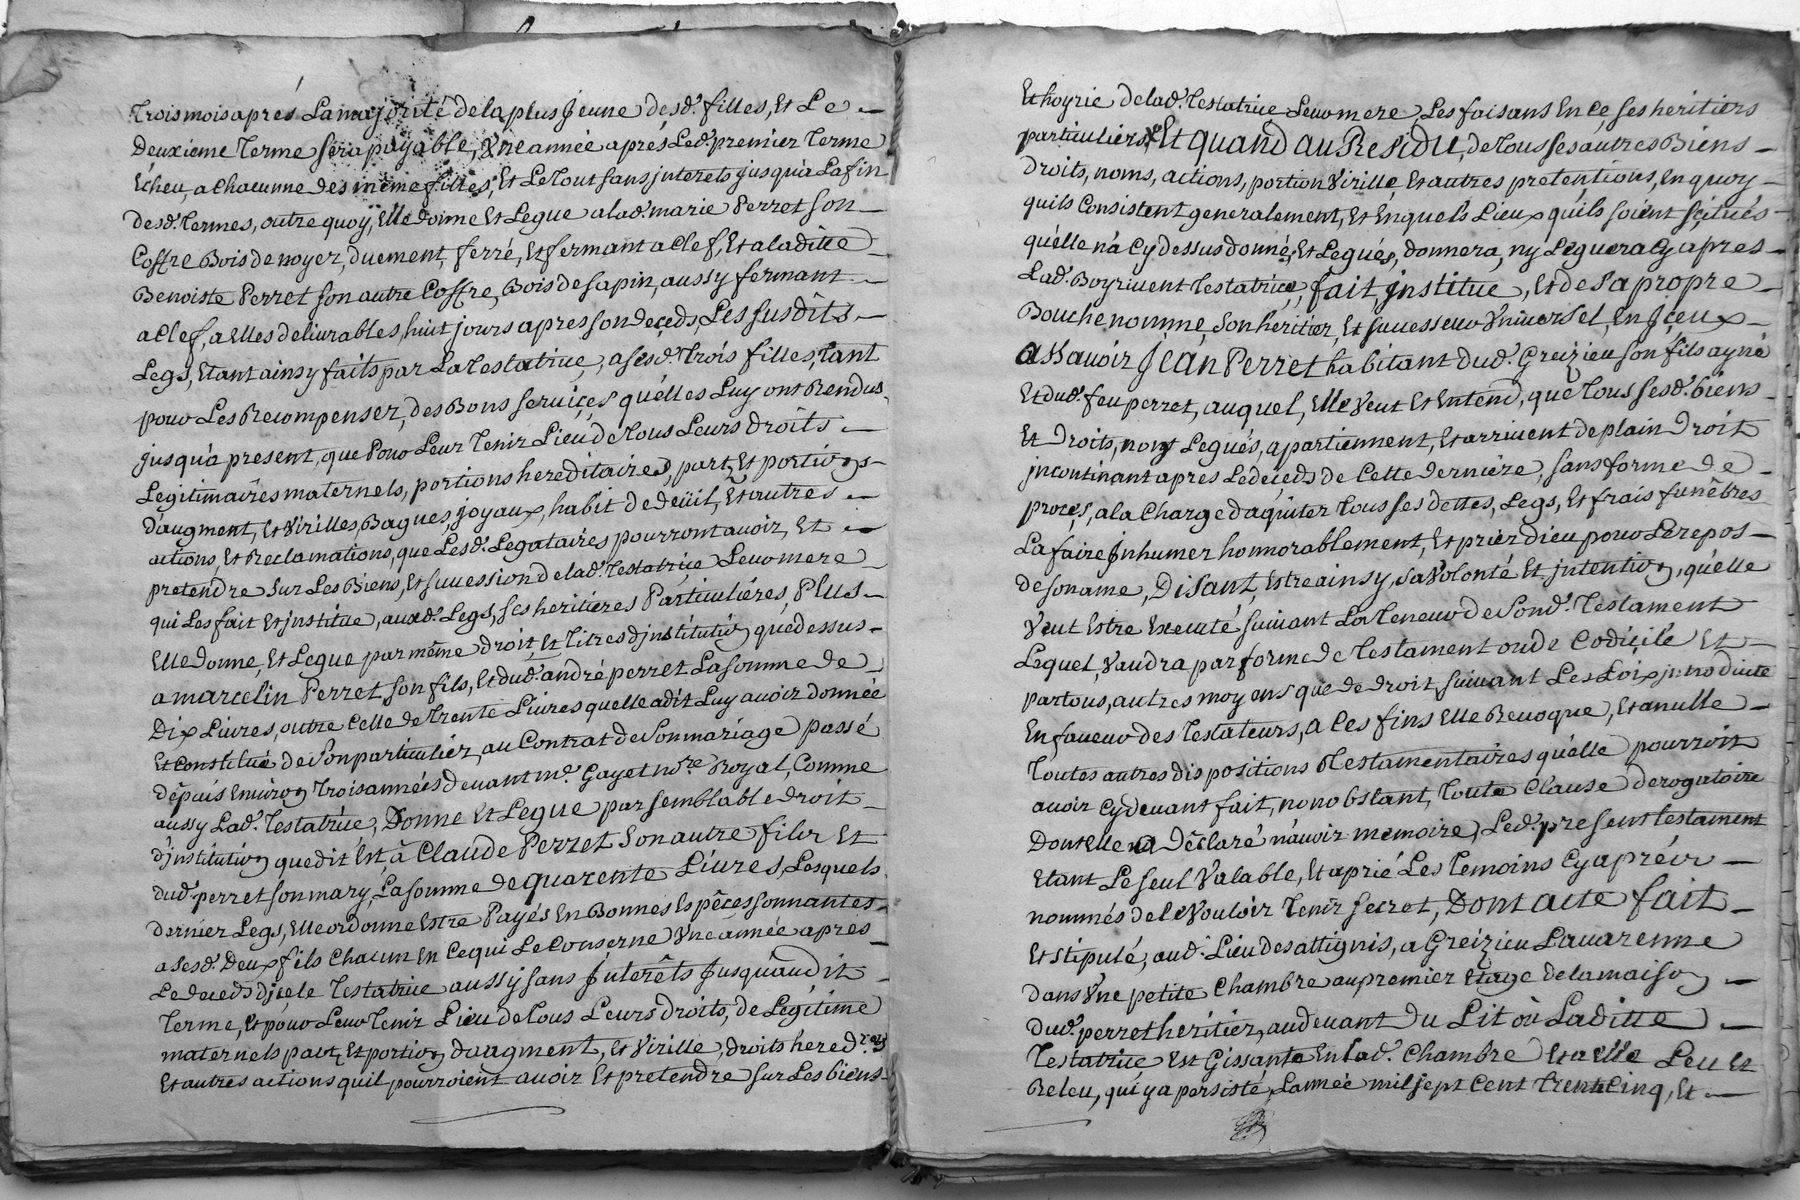 trois mois aprés La majorité de la plus Jeune desd. filles, Et Le
Deuxieme terme sera payable, Une année aprés Led. premier terme
Echeu, a Chacunne des même filles, Et Le tout sans jnterets jusqu'à La fin
desd. termes, outre quoy, Elle donne Et Legue a lad. marie Perret son
Coffre Bois de noyer, duement, ferré, Et fermant a Clef, Et a laditte
Benoiste Perret son autre Coffre, Bois de sapin, aussy fermant
a Clef, a Elles delivrables, huit jours apres son deçeds, Les susdits
Legs, Etant ainsy faits par La testatriçe, a ses d. trois filles, tant
pour Les Recompenser, des Bons serviçes qu'elles Luy ont Rendus
jusqu'à present, que Pour Leur tenir Lieu de tous Leurs droits
Legitimaires maternels, portions hereditaires, part, Et portions
d'augment, Et Virilles Bagues, joyaux, habit de deüil, Et autres
actions, Et Reclamations, que Lesd. Legataires pourront avoir, Et
pretendre sur Les Biens, Et succession de lad. testatriçe Leur mere
qui Les fait Et jnstitue, auxd. Legs, ses heritieres Particuliéres, Plus
Elle donne, Et Legue par même droit, Et titres d'jnstitution que dessus
a marcelin Perret son fils, Et dud. andré perret La somme de
Dix Livres, outre Celle de trente Livres quelle a dit Luy avoir donnée
Et Constitué de son particulier, au Contrat de son mariage passé
depuis Environ trois années devant me. Gayet nore. Royal, Comme
aussy Lad. testatrice, Donne Et Legue par semblable droit
d'jnstitution que dit Est, à Claude Perret son autre fils Et
dud. perret son mary, La somme de quarente Livres, Lesquels
dernier Legs, Elle ordonne Estre Payés En Bonnes Espêces sonnantes
a sesd. Deux fils Chacun En Ce qui Le Conserne Une année apres
Le deceds d'jcele testatrice aussy sans Jnterêts Jusqu'audit
terme, Et pour Leur tenir Lieu de tous Leurs droits, de Legitime
maternels part, Et portion d'augment, Et Virille, droits héredres
Et autres actions qu'il pourroient avoir Et pretendre sur Les biens
Et hoyrie de lad. testatrice Leur mere, Les faisans En Ce ses heritiers
particuliers, Et quand au Residu, de tous ses autres Biens
droits, noms, actions, portion Virille, Et autres pretentions, En quoy
quils Consistent generalement, Et En quels Lieux qu'ils soient sçitués
qu'elle n'a Cy dessus donné, Et Legués, donnera, ny Leguera Cy apres
Lad. Boyrivent testatrice, fait, jnstitue, Et de sa propre
Bouche nomme, son heritier, Et successeur Universel, En Jçeux
assavoir Jean Perret habitant dud. Greizieu son fils ayné
Et dud. feu perret, auquel, Elle Veut Et Entend, que tous sesd. biens
Et droits, non Legués, apartiennent, Et arrivent de plain droit
jncontinant apres Le deçeds de Cette derniere, sans forme de
proçes, a la Charge d'aquiter tous ses dettes, Legs, Et frais funêbres
La faire Jnhumer honnorablement, Et prier dieu pour Le repos
de son ame, Disant, Estre ainsy, sa Volonté Et jntention, qu'elle
Veut Estre Executé suivant La teneur de sond. testament
Lequel, Vaudra par forme de testament ou de Codiçile Et
par tous, autres moyens que de droit suivant Les Loix jntroduite
En faveur des testateurs, a Ces fins Elle Revoque, Et anulle
toutes autres dispositions testamentaires qu'elle pourroit
avoir Cy devant fait, nonobstant, toute Clause derogatoire
dont Elle a Déclaré n'avoir memoire, Led. present testament
Etant Le seul Valable, Et a prié Les temoins Cy aprés
nommés de le Vouloir tenir secret, Dont acte fait
Et stipulé, aud. Lieu des attignis, a Greizieu Lavarenne
dans Une petite Chambre au premier Etage de la maison
dud. perret heritier, au devant du Lit où Laditte
testatrice Est Gissante En lad. Chambre Et a Elle Leu Et
Releu, qui y a persisté, L'année mil sept Cent trente Cinq, Et